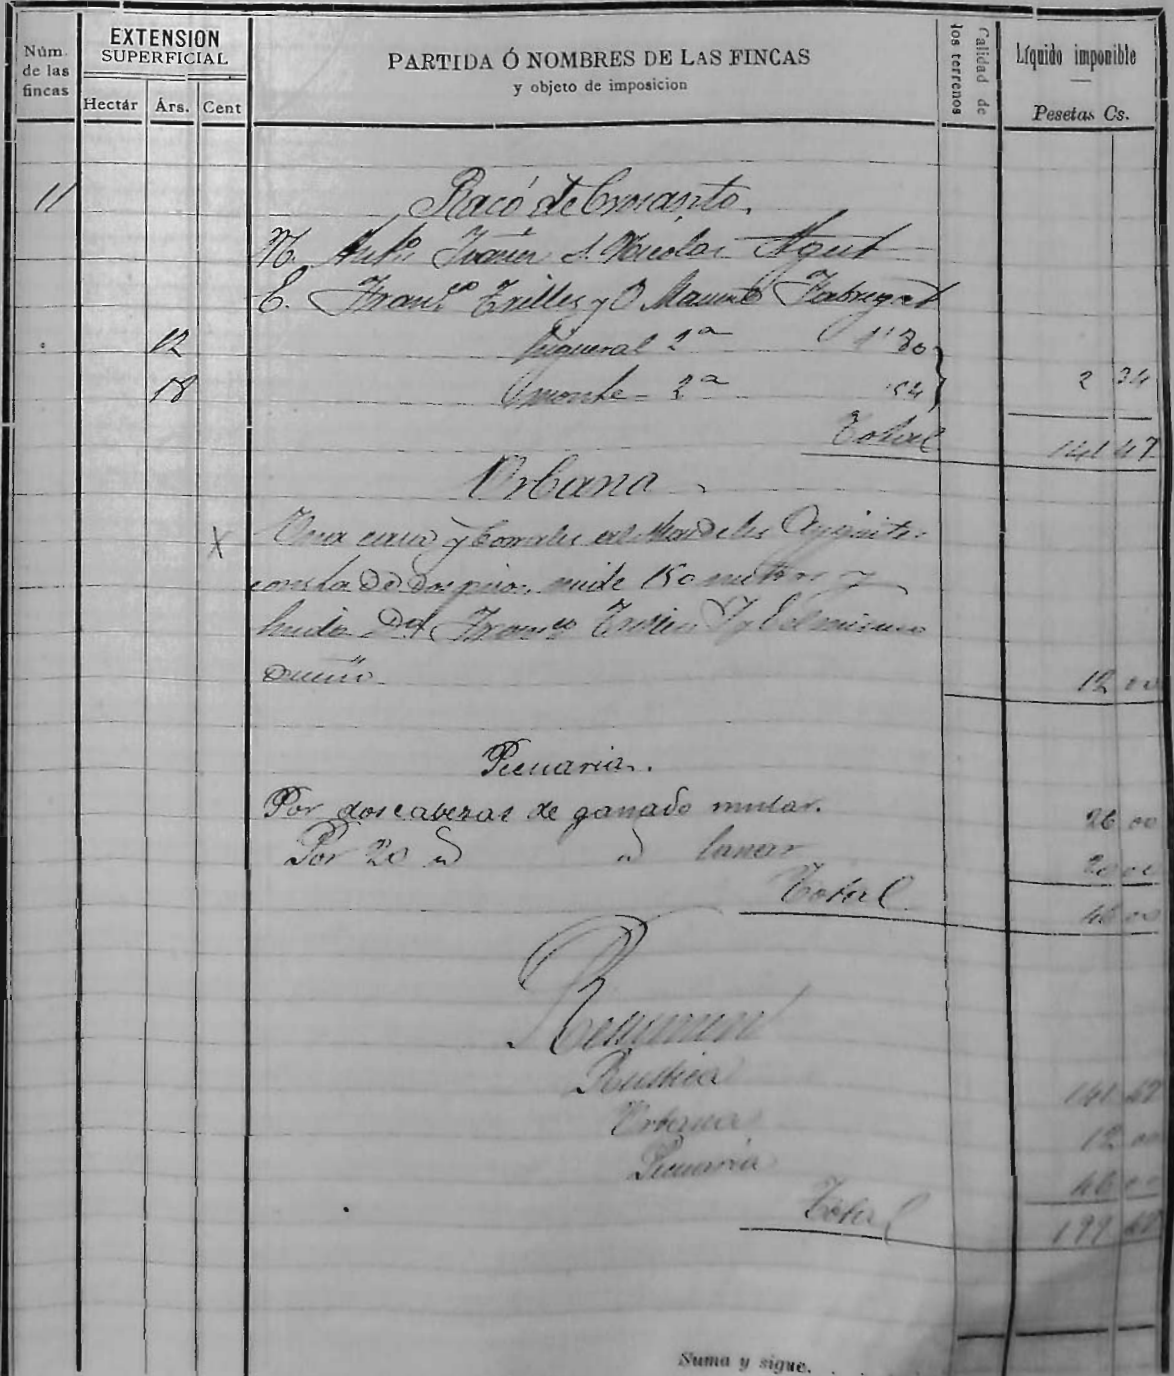 Núm. de las fincas
EXTENSION SUPERFICIAL
Hectár Árs. Cent
PARTIDA Ó NOMBRES DE LAS FINCAS
y objeto de imposicion
Calidad de los terrenos
Líquido imponible
Pesetas Cs.
11 Racó de
N. Antº Juan S. Nicolas Agut
E. Franco Trilles y O. Manuel Fabregat
12 figueral 2ª 1'80
18 monte = 2ª '54 2 34
Total 141 47
Urbana
X Una casa y Corrales
consta de dos pisos, mide 150 metros y
linda Dª Franco Trilles Y y E el mismo
dueño 12 00
Pecuaria.
Por dos cabezas de ganado mular. 26 00
Por 20 id id lanar 20 00
Total 46 00
Resumen
Rustica 141 47
Urbana 12 00
Pecuaria 46 00
Total 199 47
Suma y sigue.